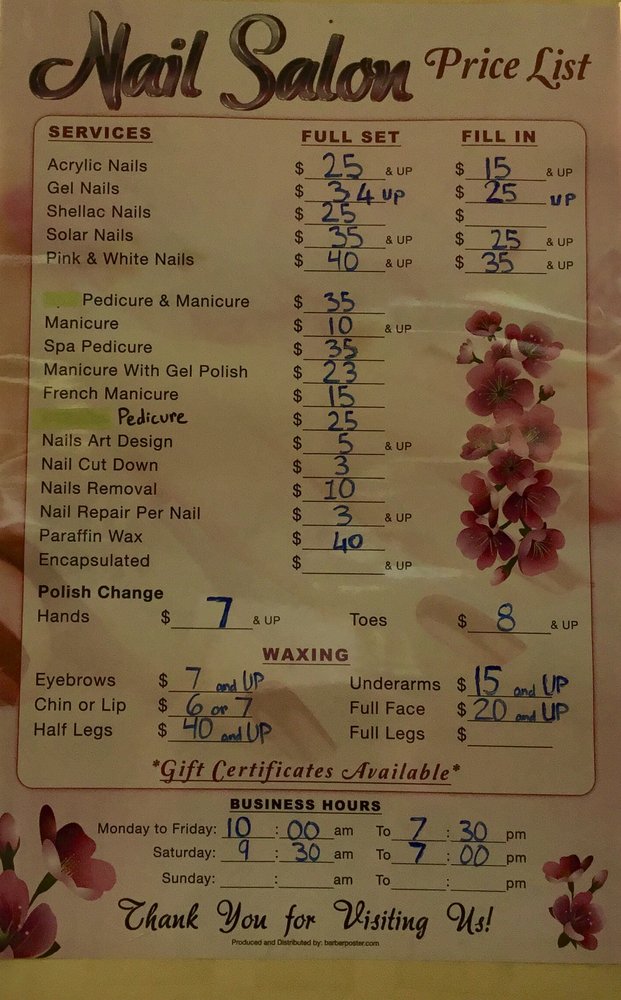 Nail Salon Price List
SERVICES FULL SET FILL IN
Acrylic Nails $ 25 & UP $ 15 & UP
Gel Nails $ 34 UP $ 25 UP
Shellac Nails $ 25 $
Solar Nails $ 35 & UP $ 25 & UP
Pink & White Nails $ 40 & UP $ 35 & UP
Pedicure & Manicure $ 35
Manicure $ 10 & UP
Spa Pedicure $ 35
Manicure With Gel Polish $ 23
French Manicure $ 15
Pedicure $ 25
Nails Art Design $ 5 & UP
Nail Cut Down $ 3
Nails Removal $ 10
Nail Repair Per Nail $ 3 & UP
Paraffin Wax $ 40
Encapsulated $ & UP
Polish Change
Hands $ 7 & UP Toes $ 8 & UP
WAXING
Eyebrows $ 7 and UP Underarms $ 15 and UP
Chin or Lip $ 6 or 7 Full Face $ 20 and UP
Half Legs $ 40 and UP Full Legs $
*Gift Certificates Available*
BUSINESS HOURS
Monday to Friday: 10 : 00 am To 7 : 30 pm
Saturday: 9 : 30 am To 7 : 00 pm
Sunday: : am To : pm
Thank You for Visiting Us!
Produced and Distributed by: barberposter.com